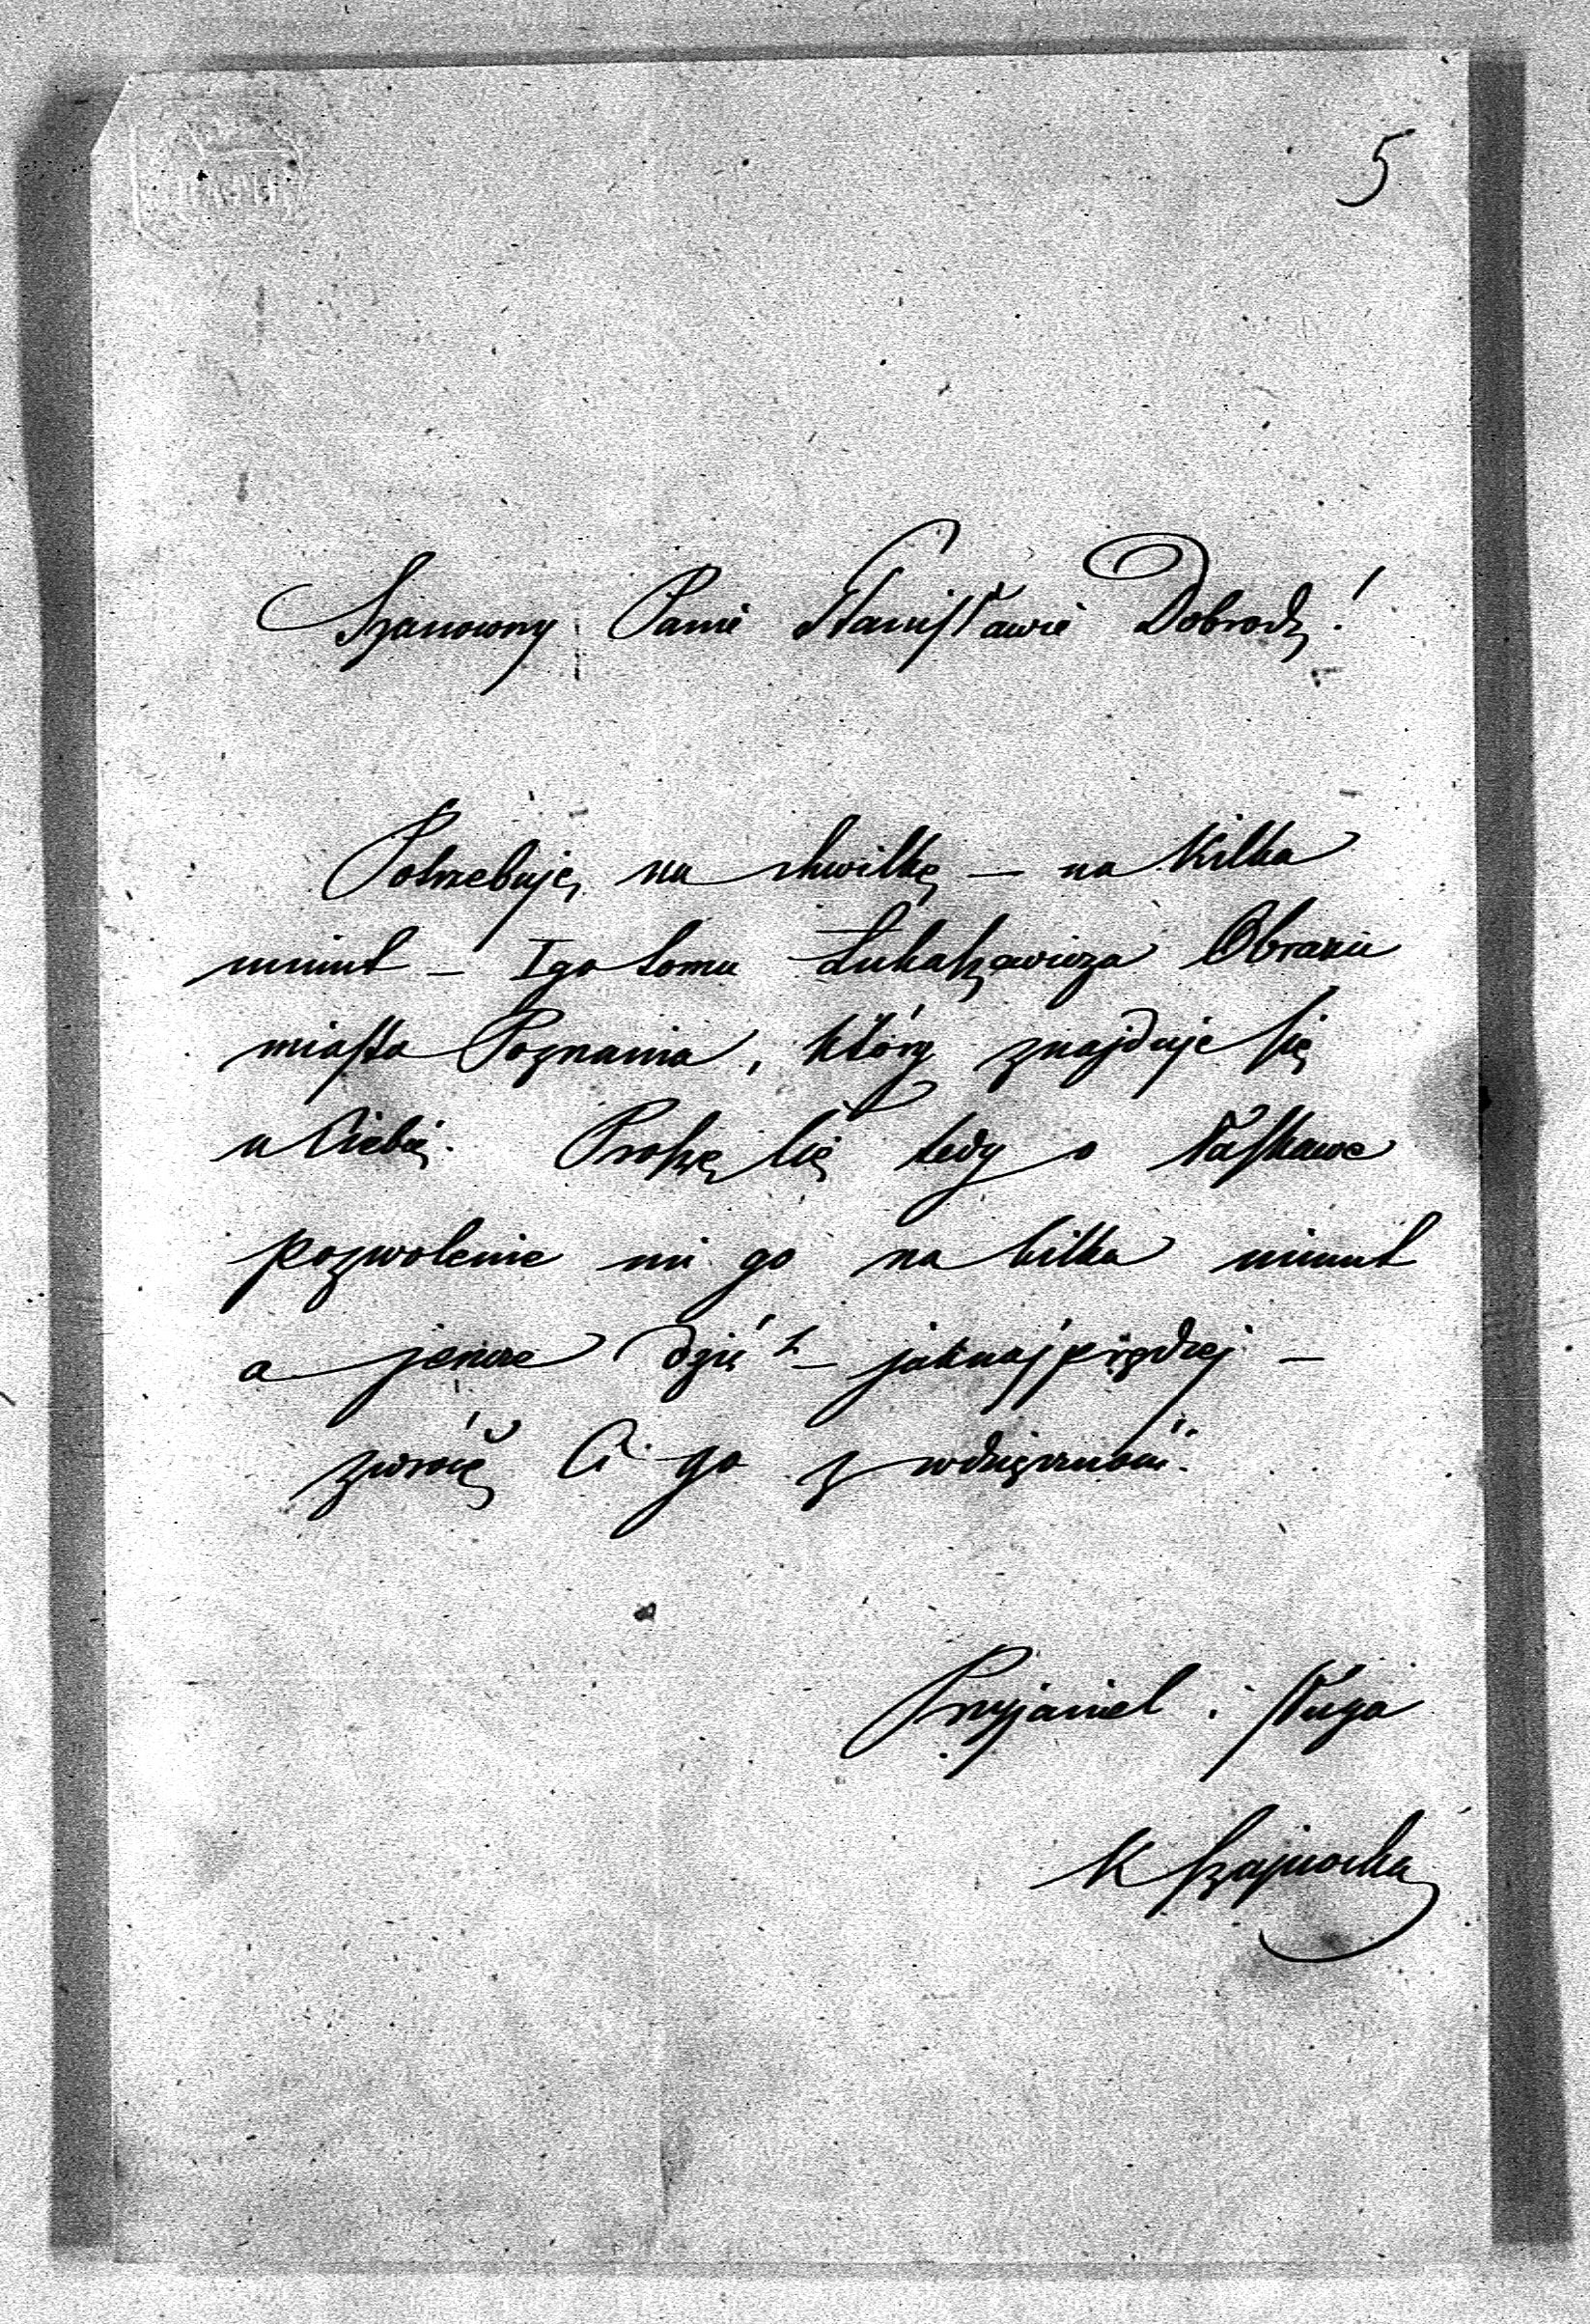 5
Szanowny Panie Stanisławie Dobrodz!
Potrzebuję na chwilkę — na kilka
minut — Igo tomu Łukaszewicza Obrazu
miasta Poznania, który znajduje się
u Ciebie. Proszę Cię tedy o łaskawe
pozwolenie mi go na kilka minut
a jeszcze dziś — jaknajprędzej —
zwrócę Ci go z wdzięcznością.
Przyjaciel i sługa
K Szajnocha